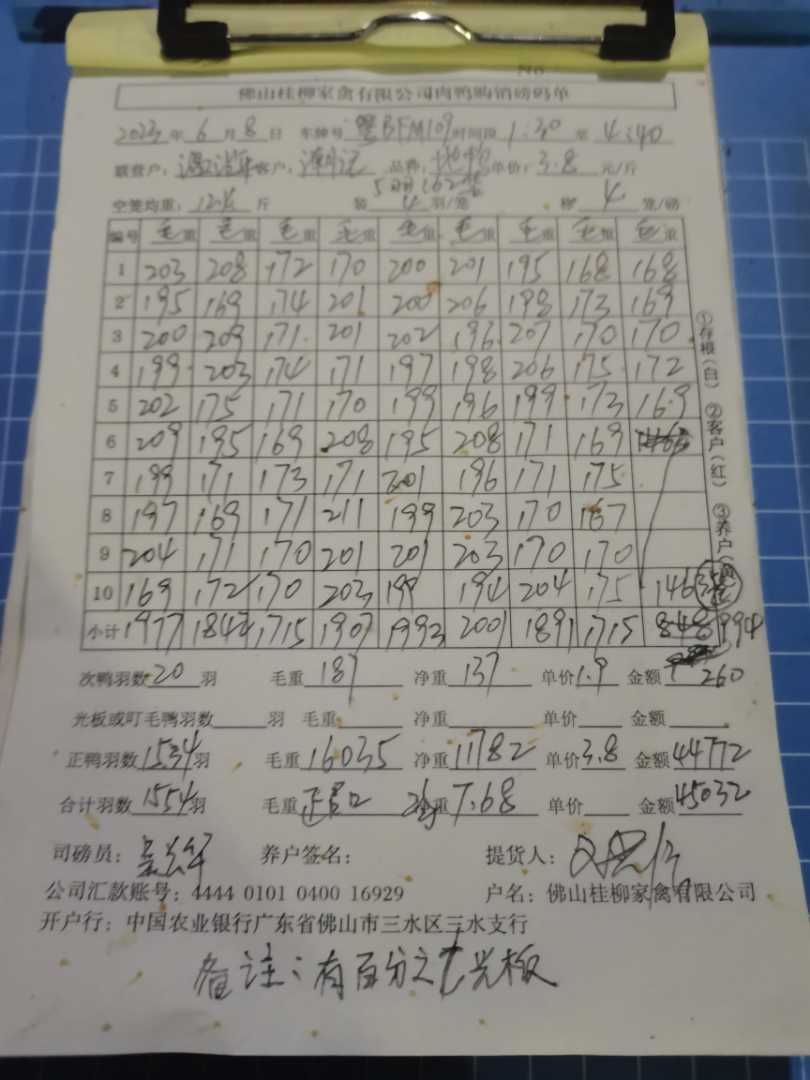 No
佛山桂柳家禽有限公司肉鸭购销磅码单
2023年6月8日 车牌号 粤BFM109 时间段 1:30 至 4:40
联营户: 客户: 潮记 品种: 单价: 3.8 元/斤
空笼均重: 12.4 斤 装 4 羽/笼 榜 4 笼/磅
编号 毛重 毛重 毛重 毛重 毛重 毛重 毛重 毛重 毛重
1 203 208 172 170 200 201 195 168 168
2 195 169 174 201 200 206 198 173 169
3 200 209 171 201 202 196 207 170 170
4 199 203 174 171 197 198 206 175 172
5 202 175 171 170 199 196 199 173 169
6 209 195 169 208 195 208 171 169
7 199 171 173 171 201 196 171 175
8 197 169 171 211 199 203 170 167
9 204 171 170 201 201 203 170 170
10 169 172 170 203 199 194 204 175 146
小计 1977 1842 1715 1907 1993 2001 1891 1715 848 994
次鸭羽数 20 羽 毛重 187 净重 137 单价 1.9 金额 260
光板或叮毛鸭羽数 羽 毛重 净重 单价 金额
正鸭羽数 1534 羽 毛重 16035 净重 11782 单价 3.8 金额 44772
合计羽数 1554 羽 毛重 净重 7.68 单价 金额 45032
司磅员: 养户签名: 提货人:
公司汇款账号: 4444 0101 0400 16929 户名: 佛山桂柳家禽有限公司
开户行: 中国农业银行广东省佛山市三水区三水支行
备注: 有百分之七光板
①存根(白) ②客户(红) ③养户(